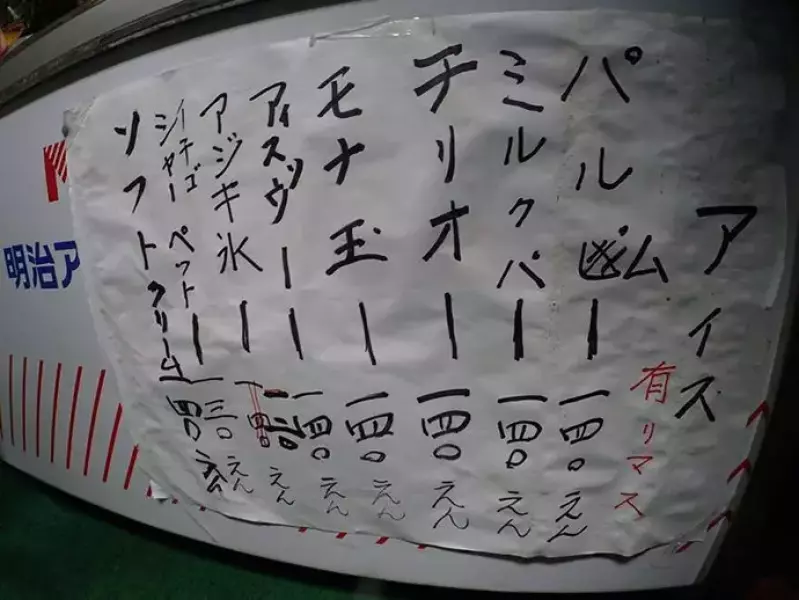 アイス
有リマス
パルム ー 一四〇えん
ミルクパ ー 一四〇えん
チリオ ー 一四〇えん
モナ玉 ー 一四〇えん
アイスヅー ー 一四〇えん
アジキ氷 ー えん
イチゴシャーペット ー 一三〇えん
ソフトクリーム ー 一四〇えん
明治ア